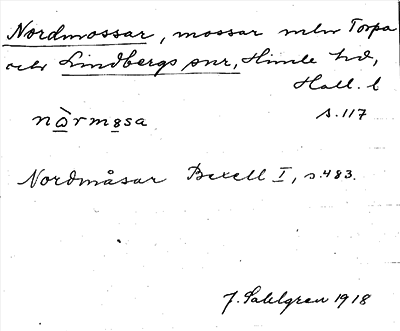 Nordmossar, mossar mlm Torpa
och Lindbergs snr, Himle hd,
Hall. l
s. 117
nɷ̀rmɞsa
Nordmåsar Bexell I, s. 483.
J. Sahlgren 1918